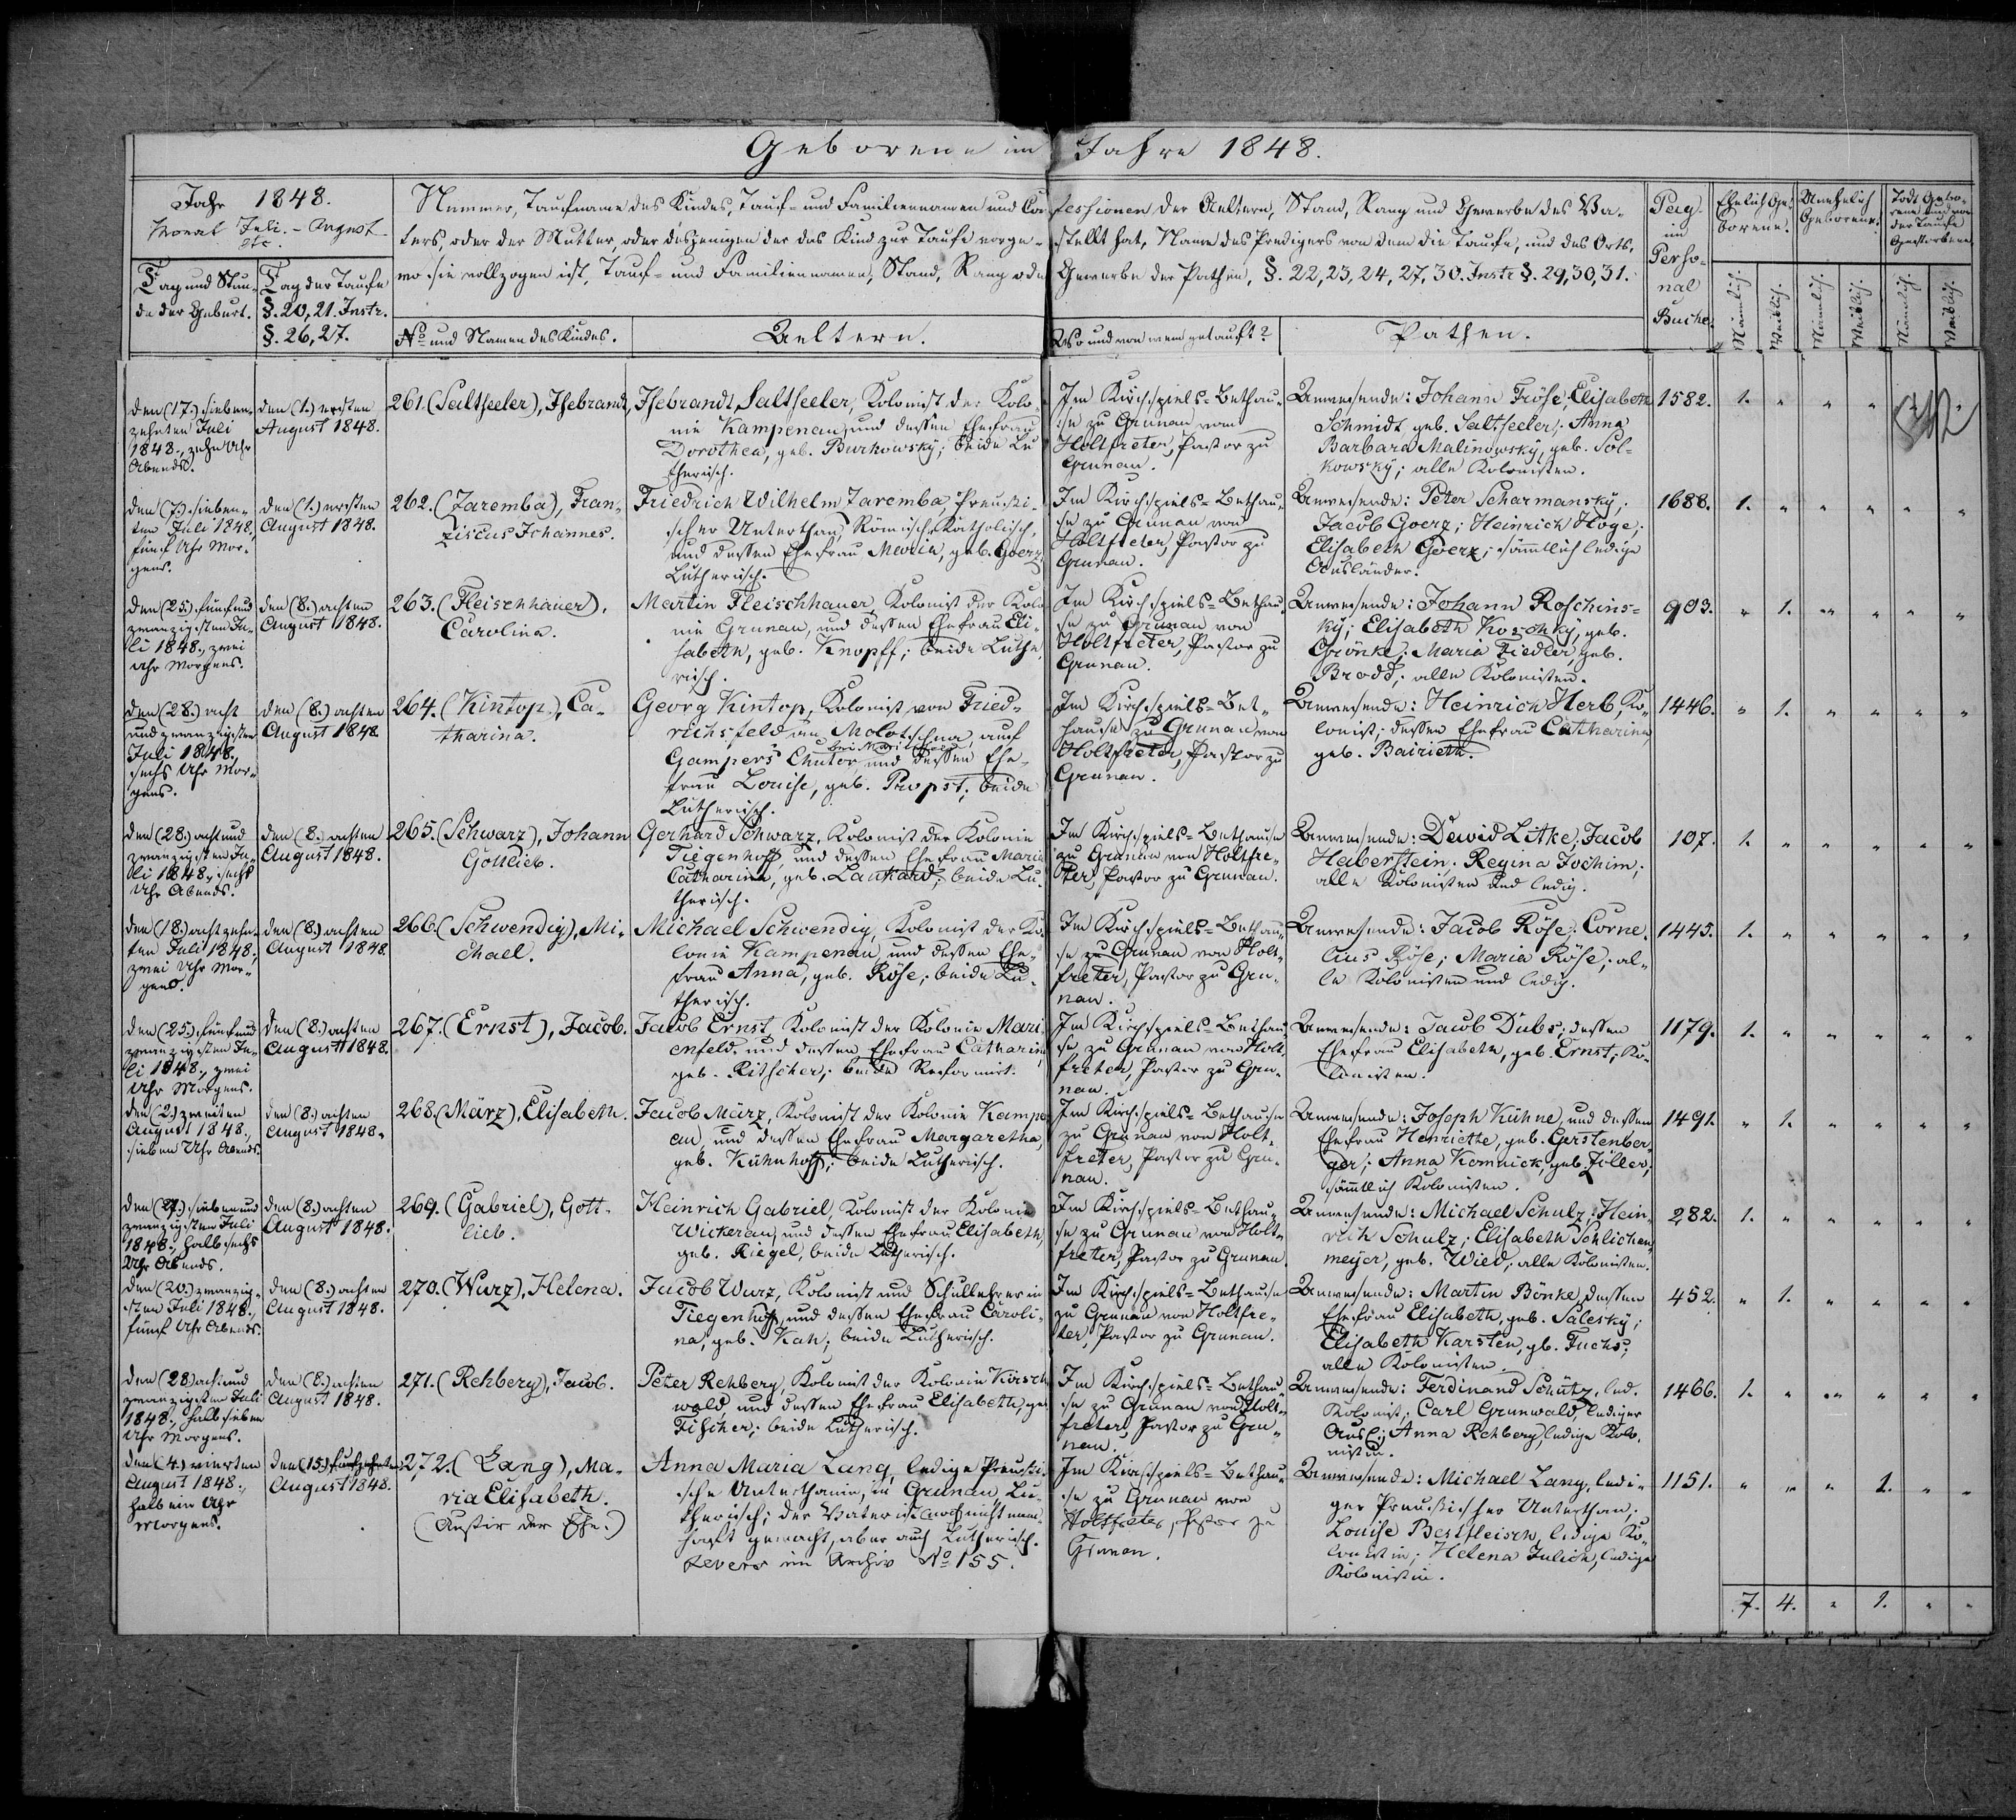 Geborene im Jahre 1848.
Jahr 1848.
Monat Juli. - August
etc.
Tag und Stun-
de der Geburt.
Tag der Taufe
§. 20, 21. Instr.
§. 26, 27.
Nummer, Taufname des Kindes, Tauf- und Familiennamen und Con-
fessionen der Aeltern, Stand, Rang und Gewerbe des Va-
ters, oder der Mutter, oder desjenigen der das Kind zur Taufe vorge-
stellt hat, Name des Predigers von dem die Taufe, und des Orts,
wo sie vollzogen ist, Tauf- und Familiennamen, Stand, Rang oder
Gewerbe der Pathen, §. 22, 23, 24, 27, 30. Instr §. 29, 30, 31.
No und Namen des Kindes.
Aeltern.
Wo und von wem getauft?
Pathen.
Pag.
im
Perso-
nal
Buche.
Ehelich Ge-
borene.
Unehelich
Geborene.
Todt Gebo-
rene und vor
der Taufe
Gestorbene
Männlich.
Weiblich.
Männlich.
Weiblich.
Männlich.
Weiblich.
den (17.) sieben-
zehnten Juli
1848., zehn Uhr
Abends.
den (1.) ersten
August 1848.
261. (Saltseeler), Isebrandt,
Isebrandt Saltseeler, Kolonist der Kolo-
nie Kampenau, und dessen Ehefrau
Dorothea, geb. Burkowsky; beide Lu-
therisch.
Im Kirchspiels-Bethau-
se zu Grunau von
Holtfreter, Pastor zu
Grunau.
Anwesende: Johann Fröse; Elisabeth
Schmidt geb. Saltseeler; Anna
Barbara Malinowsky, geb. Sol-
kowsky; alle Kolonisten.
1582. 1. " " "
den (7.) sieben-
ten Juli 1848,
fünf Uhr Mor-
gens.
den (1.) ersten
August 1848.
262. (Zaremba), Fran-
ziscus Johannes.
Friedrich Wilhelm Zaremba, Preussi-
scher Unterthan, Römisch-Katholisch,
und dessen Ehefrau Maria, geb. Goerz,
Lutherisch.
Im Kirchspiels-Bethau-
se zu Grunau von
Holtfreter, Pastor zu
Grunau.
Anwesende: Peter Scharmansky;
Jacob Goerz; Heinrich Hoge;
Elisabeth Goerz; sämtlich ledige
Ausländer.
1688. 1. " " " " "
den (25.) fünf und
zwanzigsten Ju-
li 1848., zwei
Uhr Morgens.
den (8.) achten
August 1848.
263. (Fleischhauer),
Carolina.
Martin Fleischhauer, Kolonist der Kolo-
nie Grunau, und dessen Ehefrau Eli-
sabeth, geb. Knopff; beide Luthe-
risch.
Im Kirchspiels-Bethau-
se zu Grunau von
Holtfreter, Pastor zu
Grunau.
Anwesende: Johann Roschins-
ky; Elisabeth Koschky, geb.
Grönke; Maria Fiedler, geb.
Brodd; alle Kolonisten.
903. " 1. " " " "
den (28.) acht
und zwanzigsten
Juli 1848.,
sechs Uhr Mor-
gens.
den (8.) achten
August 1848.
264. (Kintop), Ca-
tharina.
Georg Kintop, Kolonist von Fried-
richsfeld an Molotschna, auf
Gampers Chutor und dessen Ehe-
frau Louise, geb. Propst; beide
Lutherisch.
Im Kirchspiels-Bet-
hause zu Grunau von
Holtfreter, Pastor zu
Grunau.
Anwesende: Heinrich Herb, Ko-
lonist; dessen Ehefrau Catharina,
geb. Bairieth.
1446. " 1. " " " "
den (28.) acht und
zwanzigsten Ju-
li 1848., sechs
Uhr Abends.
den (8.) achten
August 1848.
265. (Schwarz), Johann
Gottlieb.
Gerhard Schwarz, Kolonist der Kolonie
Tiegenhoff, und dessen Ehefrau Maria
Catharina, geb. Laukard; beide Lu-
therisch.
Im Kirchspiels-Bethause
zu Grunau von Holtfre-
ter, Pastor zu Grunau.
Anwesende: Dawid Litke; Jacob
Haberstein; Regina Jochim;
alle Kolonisten und ledig.
107. 1. " " " " "
den (18.) achtzehn-
ten Juli 1848.,
zwei Uhr Mor-
gens.
den (8.) achten
August 1848.
266. (Schwendig), Mi-
chael.
Michael Schwendig, Kolonist der Ko-
lonie Kampenau, und dessen Ehe-
frau Anna, geb. Röse; beide Lu-
therisch.
Im Kirchspiels-Bethau-
se zu Grunau von Holt-
freter, Pastor zu Gru-
nau.
Anwesende: Jacob Röse; Corne-
lius Röse; Maria Röse; al-
le Kolonisten und ledig.
1445. 1. " " " " "
den (25.) fünf und
zwanzigsten Ju-
li 1848., zwei
Uhr Morgens.
den (8.) achten
August 1848.
267. (Ernst), Jacob.
Jacob Ernst, Kolonist der Kolonie Mari-
enfeld, und dessen Ehefrau Catharina,
geb. Ritscher; beide Reformirt.
Im Kirchspiels-Bethau-
se zu Grunau von Holt-
freter, Pastor zu Gru-
nau.
Anwesende: Jacob Dubs; dessen
Ehefrau Elisabeth, geb. Ernst; Ko-
lonisten.
1179. 1. " " " " "
den (2.) zweiten
August 1848.,
sieben Uhr Abends.
den (8.) achten
August 1848.
268. (März), Elisabeth.
Jacob März, Kolonist der Kolonie Kampe-
au, und dessen Ehefrau Margaretha,
geb. Kühnhoff; beide Lutherisch.
Im Kirchspiels-Bethause
zu Grunau von Holt-
freter, Pastor zu Gru-
nau.
Anwesende: Joseph Kühne, und dessen
Ehefrau Henriette, geb. Gerstenber-
ger; Anna Komnick, geb. Ziller,
sämtlich Kolonisten.
1491. " 1. " " " "
den (27.) sieben und
zwanzigsten Juli
1848., halb sechs
Uhr Abends.
den (8.) achten
August 1848.
269. (Gabriel), Gott-
lieb.
Heinrich Gabriel, Kolonist der Kolonie
Wickerau, und dessen Ehefrau Elisabeth,
geb. Riegel, beide Lutherisch.
Im Kirchspiels-Bethau-
se zu Grunau von Holt-
freter, Pastor zu Grunau.
Anwesende: Michael Schulz; Hein-
rich Schulz; Elisabeth Schlichen-
meijer, geb. Wied; alle Kolonisten.
282. 1. " " " " "
den (20.) zwanzig-
sten Juli 1848.,
fünf Uhr Abends.
den (8.) achten
August 1848.
270. (Wurz), Helena.
Jacob Wurz, Kolonist und Schullehrer in
Tiegenhoff, und dessen Ehefrau Caroli-
na, geb. Kah; beide Lutherisch.
Im Kirchspiels-Bethause
zu Grunau von Holtfre-
ter, Pastor zu Grunau.
Anwesende: Martin Bönke, dessen
Ehefrau Elisabeth, geb. Salesky;
Elisabeth Karsten, gb. Fuchs;
alle Kolonisten.
452. " 1. " " " "
den (28.) acht und
zwanzigsten Juli
1848., halb sieben
Uhr Morgens.
den (8.) achten
August 1848.
271. (Rehberg), Jacob.
Peter Rehberg, Kolonist der Kolonie Kirsch-
wald und dessen Ehefrau Elisabeth, geb.
Fischer; beide Lutherisch.
Im Kirchspiels-Bethau-
se zu Grunau von Holt-
freter, Pastor zu Gru-
nau.
Anwesende: Ferdinand Schütz, led.
Kolonist; Carl Grunwald, lediger
Ausl.; Anna Rehberg, ledige Kolo-
nistin.
1466. 1. " " " " "
den (4.) vierten
August 1848.,
halb ein Uhr
Morgens.
den (15.) fünfzehnten
August 1848.
272. (Lang), Ma-
ria Elisabeth.
(Außer der Ehe.)
Anna Maria Lang, ledige Preussi-
sche Unterthanin, in Grunau Lu-
therisch; der Vater ist noch nicht nam-
haft gemacht, aber auch Lutherisch.
Revers im Archiv No 155.
Im Kirchspiels-Bethau-
se zu Grunau von
Holtfreter, Pastor zu
Grunau.
Anwesende: Michael Lang, ledi-
ger Preussischer Unterthan;
Louise Bestfleisch, ledige Ko-
lonistin; Helena Julich, ledige
Kolonistin.
1151. " " " 1. " "
7. 4. " 1. " "